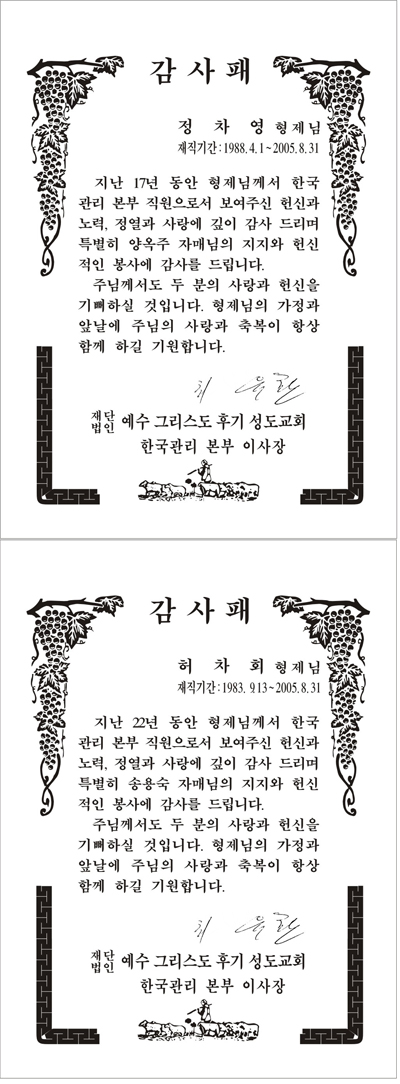 감사패
정 차 영 형제님
재직기간:1988.4.1~2005.8.31
지난 17년 동안 형제님께서 한국
관리 본부 직원으로서 보여주신 헌신과
노력, 정열과 사랑에 깊이 감사 드리며
특별히 양옥주 자매님의 지지와 헌신
적인 봉사에 감사를 드립니다.
주님께서도 두 분의 사랑과 헌신을
기뻐하실 것입니다. 형제님의 가정과
앞날에 주님의 사랑과 축복이 항상
함께 하길 기원합니다.
최 욱환
재단법인 예수 그리스도 후기 성도교회
한국관리 본부 이사장
감사패
허 차 회 형제님
재직기간:1983. 9.13~2005.8.31
지난 22년 동안 형제님께서 한국
관리 본부 직원으로서 보여주신 헌신과
노력, 정열과 사랑에 깊이 감사 드리며
특별히 송용숙 자매님의 지지와 헌신
적인 봉사에 감사를 드립니다.
주님께서도 두 분의 사랑과 헌신을
기뻐하실 것입니다. 형제님의 가정과
앞날에 주님의 사랑과 축복이 항상
함께 하길 기원합니다.
최 욱환
재단법인 예수 그리스도 후기 성도교회
한국관리 본부 이사장